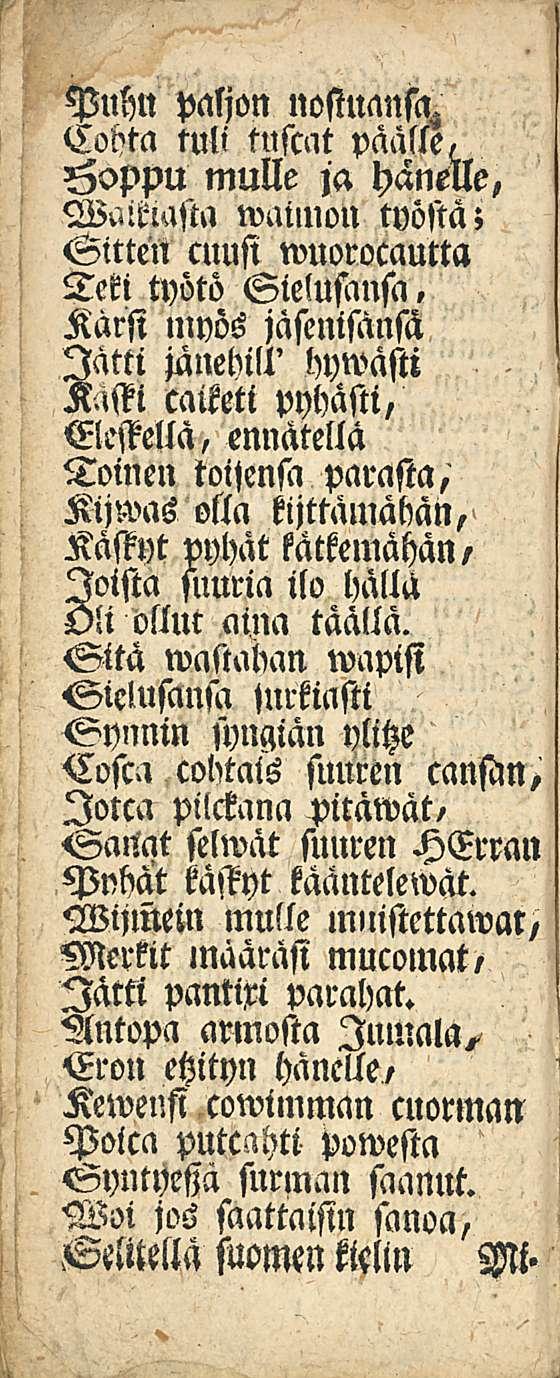 Puhu paljon nostuansa,
Cohta tuli tuscat päälle,
Hoppu mulle ja hänelle,
Waikiasta waimon työstä;
Sitten cuusi wuorocautta
Teki työtö Sielusansa,
Kärsi myös jäsenisänsä
Jätti jänehill' hywästi
Käski caiketi pyhästi,
Eleskellä, ennätellä
Toinen toijensa parasta,
Kijwas olla kijttämähän,
Käskyt pyhät kätkemähän,
Joista suuria ilo hällä
Oli ollut aina täällä.
Sitä wastahan wapisi
Sielusansa jurkiasti
Synnin syngiän ylitze
Cosca cohtais suuren cansan,
Jotca pilckana pitäwät,
Sanat selwät suuren HErran
Pyhät käskyt kääntelewät.
Wijm̃ein mulle muistettawat,
Merkit määräsi mucomat,
Jätti pantixi parahat.
Antopa armosta Jumala,
Eron etzityn hänelle,
Kewensi cowimman cuorman
Poica putcahti powesta
Syntyeßä surman saanut.
Woi jos saattaisin sanoa,
Selitellä suomen kielin Mi-